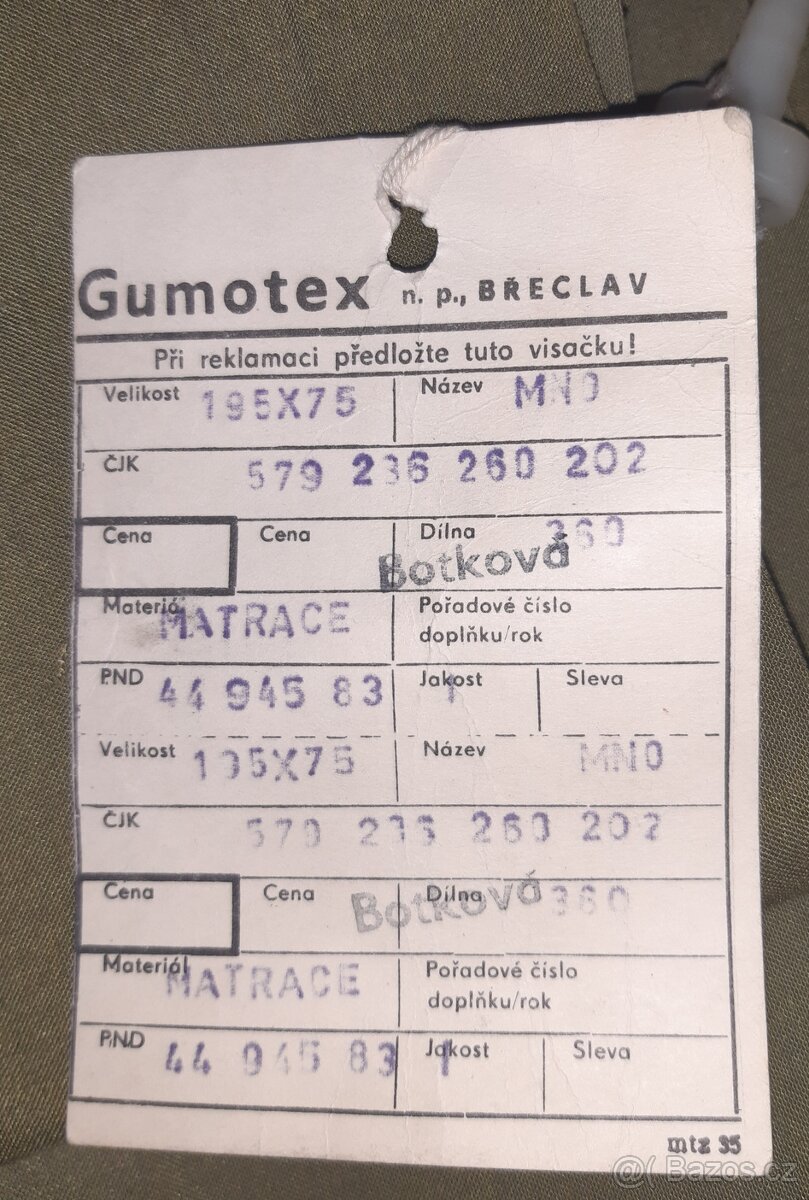 Gumotex n. p., BŘECLAV
Při reklamaci předložte tuto visačku!
Velikost 195X75 Název MNO
ČJK 579 236 260 202
Cena Cena Dílna 360
Botková
Materiál MATRACE Pořadové číslo
doplňku/rok
PND 44 945 83 Jakost 1 Sleva
Velikost 195X75 Název MNO
ČJK 579 236 260 202
Cena Cena Dílna 360
Botková
Materiál MATRACE Pořadové číslo
doplňku/rok
PND 44 945 83 Jakost 1 Sleva
mtz 35
@( Bazos.cz